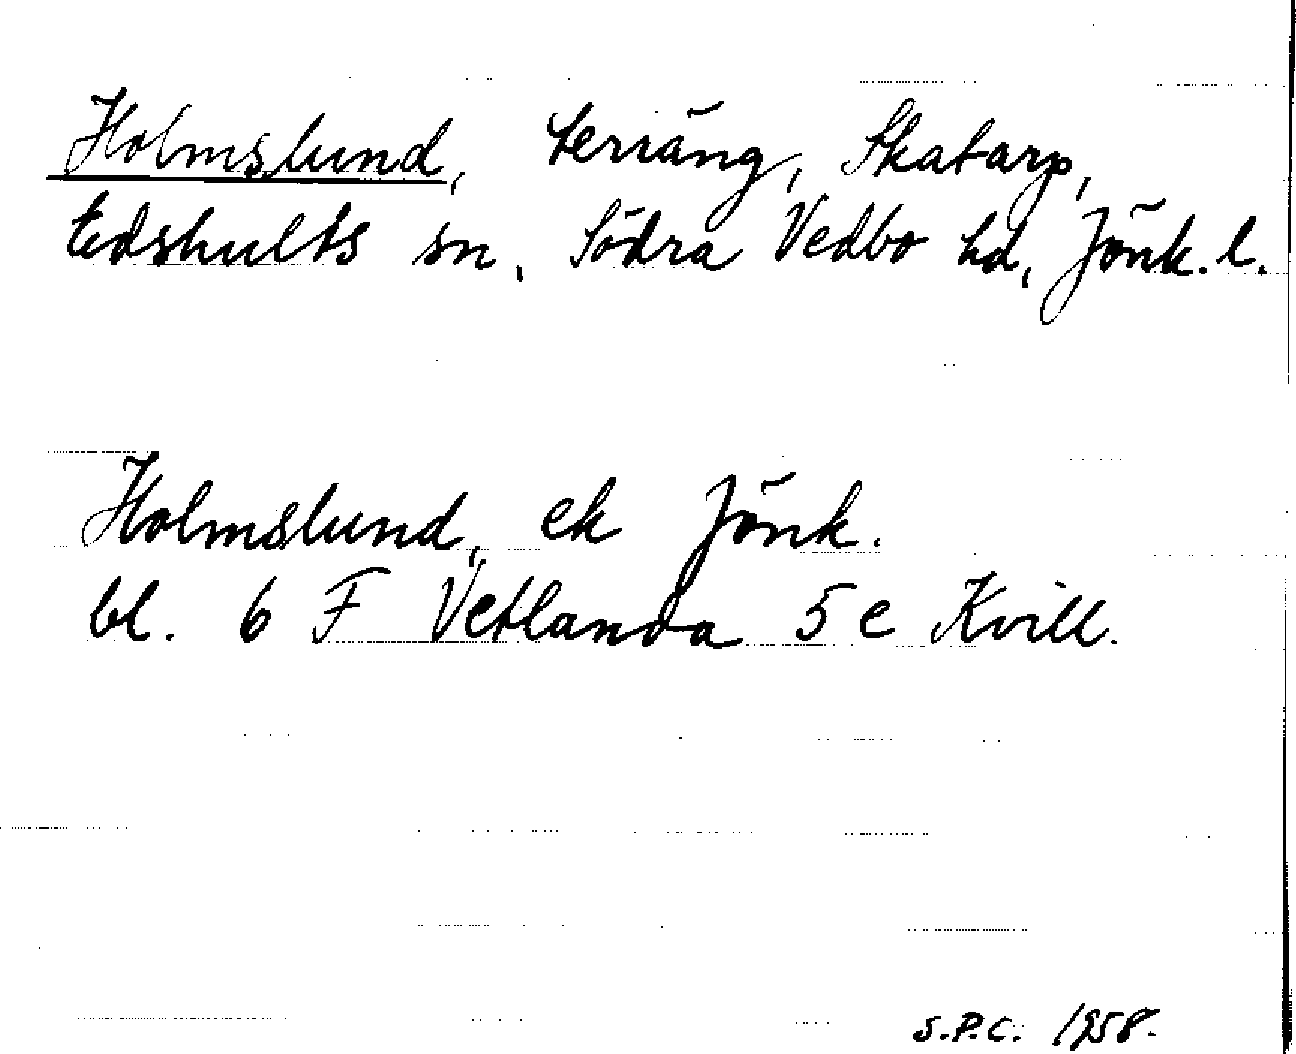 Holmslund, terräng, Skatarp,
Edshults sn, Södra Vedbo hd, Jönk. l.
Holmslund, ek Jönk.
bl. 6 F Vetlanda 5 e Kvill.
S.P.C. 1958.